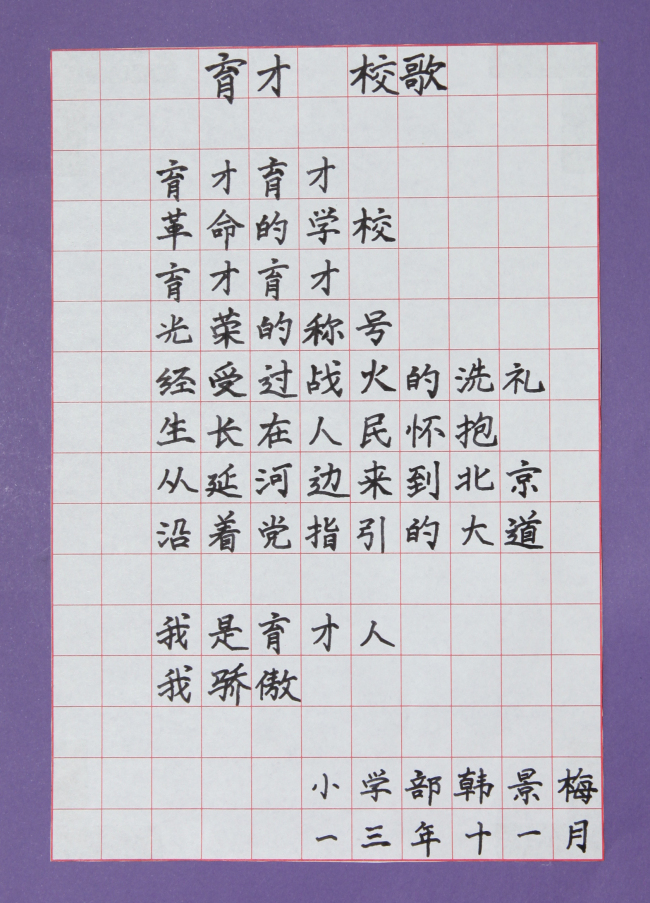 育才 校歌
育才育才
革命的学校
育才育才
光荣的称号
经受过战火的洗礼
生长在人民怀抱
从延河边来到北京
沿着党指引的大道
我是育才人
我骄傲
小学部韩景梅
一三年十一月